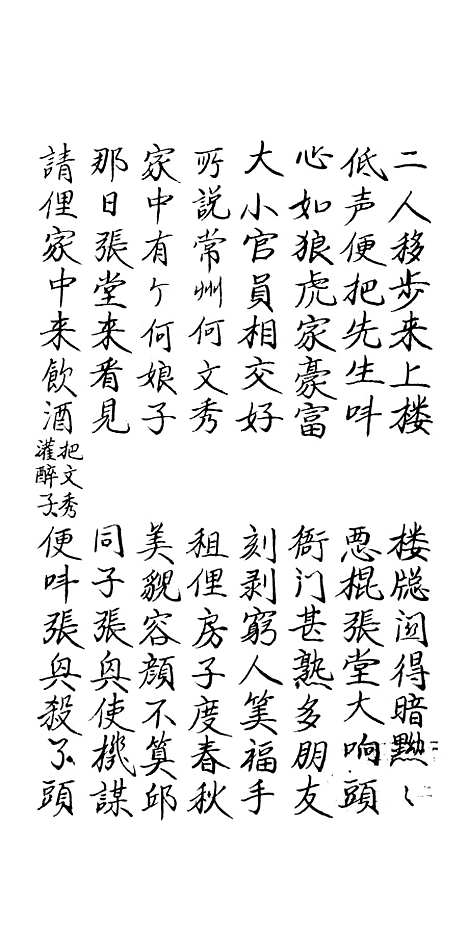 二人移步来上楼　楼牕関得暗黝〻
低声便把先生呌　悪棍張堂大响頭
心如狼虎家豪富　衙门甚熟多朋友
大小官員相交好　刻剥窮人筭福手
所説常州何文秀　租俚房子度春秋
家中有个何娘子　美貌容顔不算邱
那日張堂来看見　同子張奂使機謀
請俚家中来飲酒　把文秀灌醉子　便呌張奂殺了頭